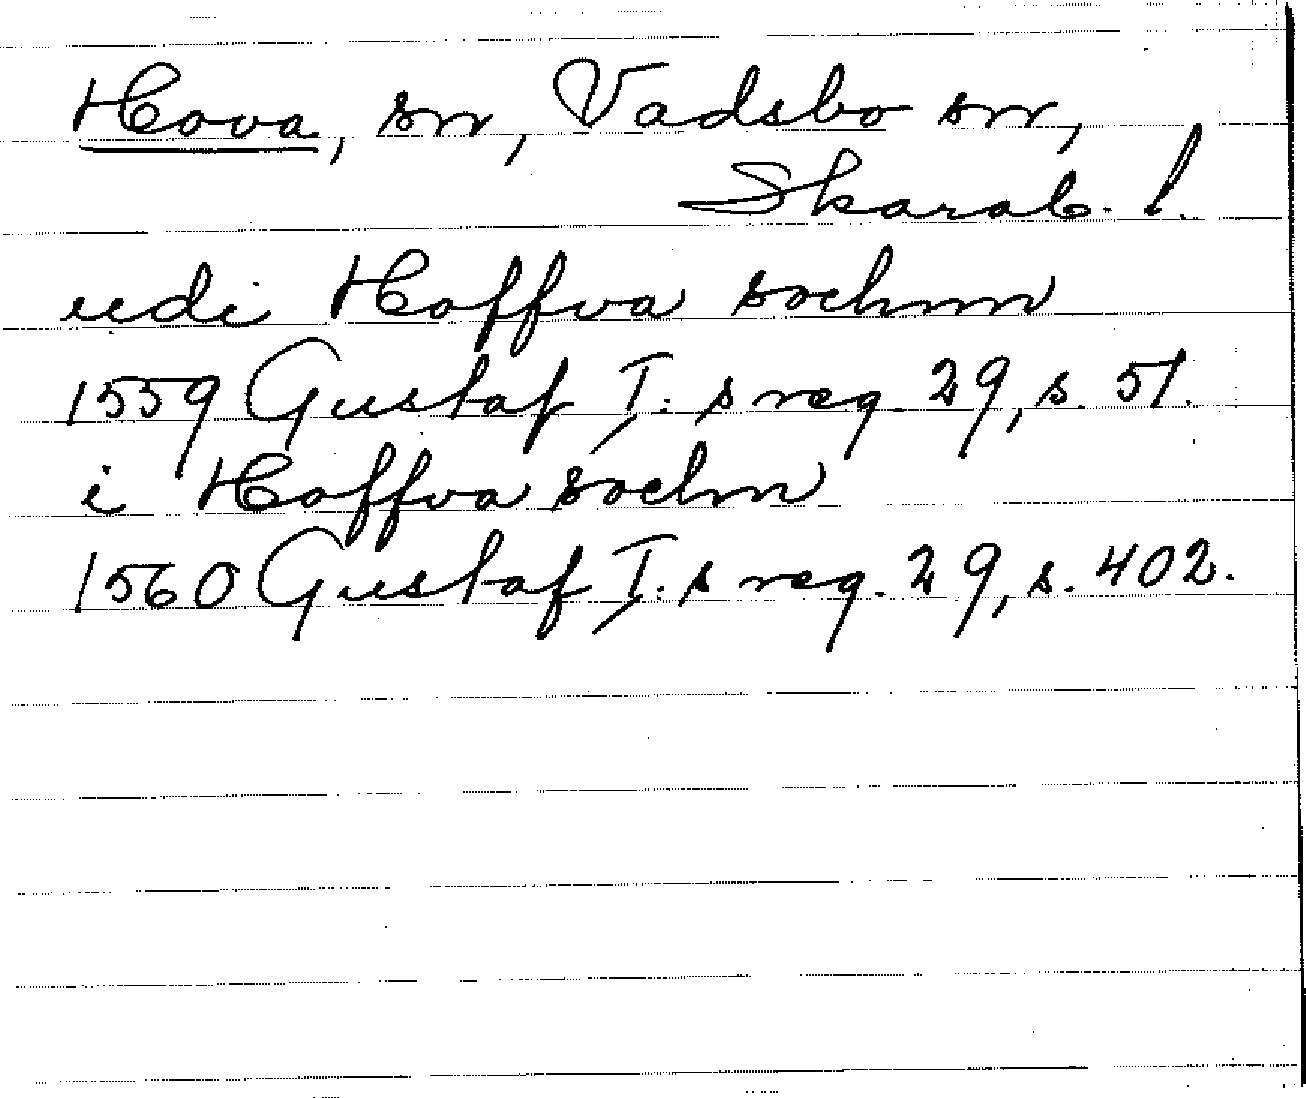 Hova, sn, Vadsbo sn,
Skarab. l.
udi Hoffva sochnn
1559 Gustaf I: s reg. 29, s. 51.
i Hoffva sochn
1560 Gustaf I: s reg. 29, s. 402.